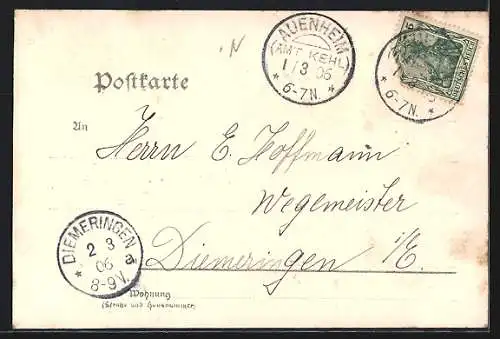 AUENHEIM
(AMT KEHL)
1/3 06
* 6-7N. *
* 6-7N. *
Postkarte
An
Herrn E. Hoffmann
Wegemeister
Diemeringen i/E.
DIEMERINGEN
2 3
06
* 8-9V.
Wohnung
(Straße und Hausnummer)